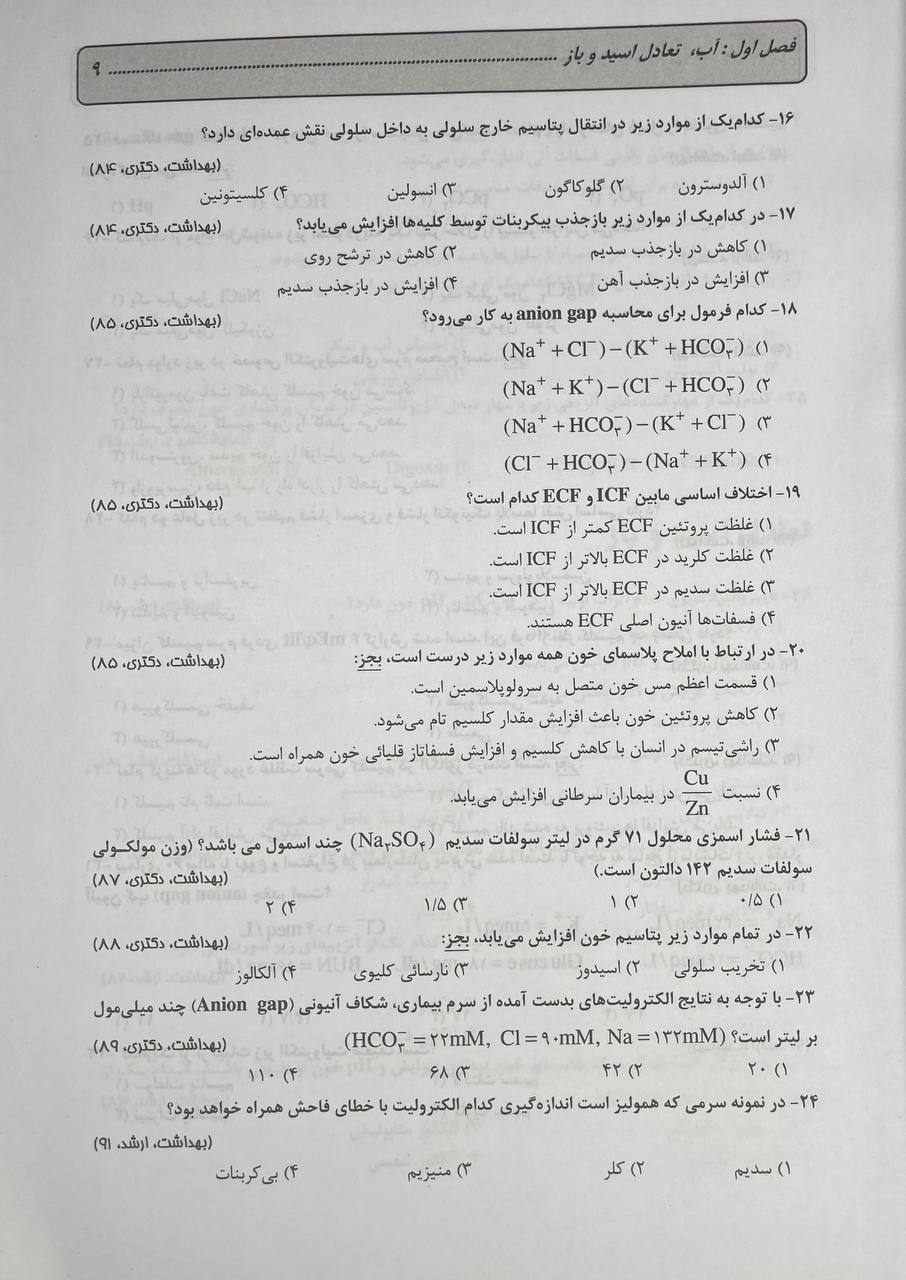 فصل اول : آب، تعادل اسید و باز ........................................................................................................ ۹
۱۶- کدام‌یک از موارد زیر در انتقال پتاسیم خارج سلولی به داخل سلولی نقش عمده‌ای دارد؟
(بهداشت، دکتری، ۸۴)
۱) آلدوسترون ۲) گلوکاگون ۳) انسولین ۴) کلسیتونین
۱۷- در کدام‌یک از موارد زیر بازجذب بیکربنات توسط کلیه‌ها افزایش می‌یابد؟ (بهداشت، دکتری، ۸۴)
۱) کاهش در بازجذب سدیم ۲) کاهش در ترشح روی
۳) افزایش در بازجذب آهن ۴) افزایش در بازجذب سدیم
۱۸- کدام فرمول برای محاسبه anion gap به کار می‌رود؟ (بهداشت، دکتری، ۸۵)
۱) (Na⁺ + Cl⁻) – (K⁺ + HCO₃⁻)
۲) (Na⁺ + K⁺) – (Cl⁻ + HCO₃⁻)
۳) (Na⁺ + HCO₃⁻) – (K⁺ + Cl⁻)
۴) (Cl⁻ + HCO₃⁻) – (Na⁺ + K⁺)
۱۹- اختلاف اساسی مابین ICF و ECF کدام است؟ (بهداشت، دکتری، ۸۵)
۱) غلظت پروتئین ECF کمتر از ICF است.
۲) غلظت کلرید در ECF بالاتر از ICF است.
۳) غلظت سدیم در ECF بالاتر از ICF است.
۴) فسفات‌ها آنیون اصلی ECF هستند.
۲۰- در ارتباط با املاح پلاسمای خون همه موارد زیر درست است، بجز: (بهداشت، دکتری، ۸۵)
۱) قسمت اعظم مس خون متصل به سرولوپلاسمین است.
۲) کاهش پروتئین خون باعث افزایش مقدار کلسیم تام می‌شود.
۳) راشی‌تیسم در انسان با کاهش کلسیم و افزایش فسفاتاز قلیائی خون همراه است.
۴) نسبت Cu/Zn در بیماران سرطانی افزایش می‌یابد.
۲۱- فشار اسمزی محلول ۷۱ گرم در لیتر سولفات سدیم (Na₂SO₄) چند اسمول می باشد؟ (وزن مولکولی
سولفات سدیم ۱۴۲ دالتون است.) (بهداشت، دکتری، ۸۷)
۱) ۰/۵ ۲) ۱ ۳) ۱/۵ ۴) ۲
۲۲- در تمام موارد زیر پتاسیم خون افزایش می‌یابد، بجز: (بهداشت، دکتری، ۸۸)
۱) تخریب سلولی ۲) اسیدوز ۳) نارسائی کلیوی ۴) آلکالوز
۲۳- با توجه به نتایج الکترولیت‌های بدست آمده از سرم بیماری، شکاف آنیونی (Anion gap) چند میلی‌مول
بر لیتر است؟ (HCO₃⁻ = ۲۲mM, Cl = ۹۰mM, Na = ۱۳۲mM) (بهداشت، دکتری، ۸۹)
۱) ۲۰ ۲) ۴۲ ۳) ۶۸ ۴) ۱۱۰
۲۴- در نمونه سرمی که همولیز است اندازه‌گیری کدام الکترولیت با خطای فاحش همراه خواهد بود؟
(بهداشت، ارشد، ۹۱)
۱) سدیم ۲) کلر ۳) منیزیم ۴) بی‌کربنات